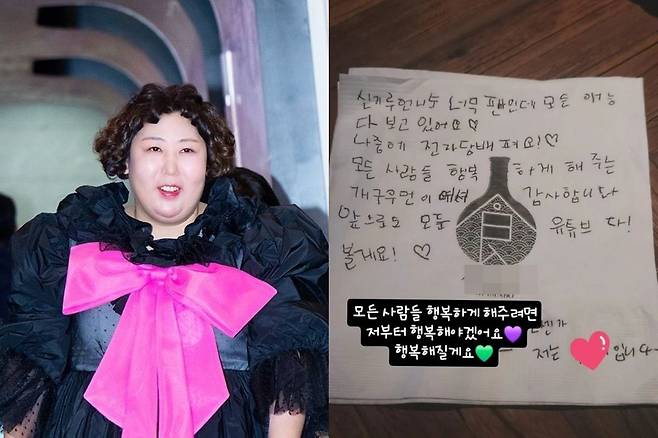 신기루언니누 너무 팬인데 모든 예능
다 보고 있어요♡
나중에 전자담배 펴요!♡
모든 사람들 행복 하게 해 주는
개그우먼이에셔 감사합니다
앞으로도 모든 유튜브 다!
볼게요! ♡
모든 사람들 행복하게 해주려면
저부터 행복해야겠어요💜
행복해질게요💚
저는 입니다